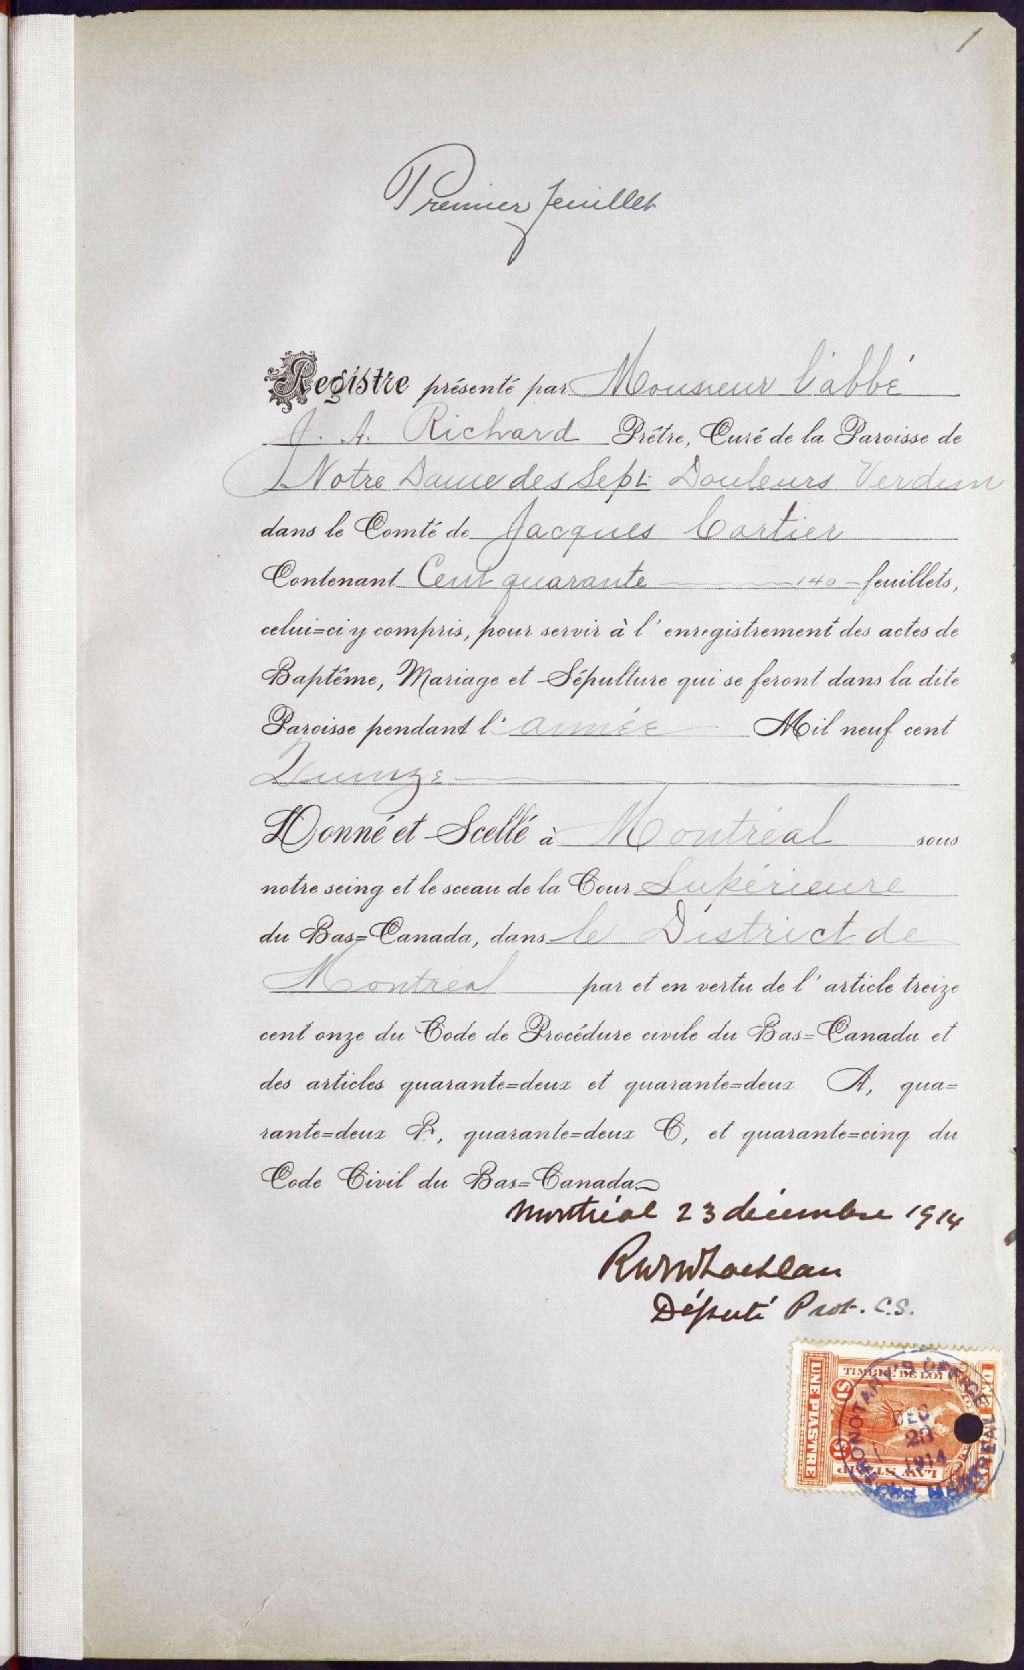 1
Premier feuillet
Registre présenté par Monsieur l'abbé
J. A. Richard Prêtre, Curé de la Paroisse de
Notre Dame des Sept Douleurs Verdun
dans le Comté de Jacques Cartier
Contenant Cent quarante 140 feuillets,
celui=ci y compris, pour servir à l'enregistrement des actes de
Baptême, Mariage et Sépulture qui se feront dans la dite
Paroisse pendant l'année Mil neuf cent
Quinze
Donné et Scellé à Montréal sous
notre seing et le sceau de la Cour Supérieure
du Bas=Canada, dans le District de
Montréal par et en vertu de l'article treize
cent onze du Code de Procédure civile du Bas=Canada et
des articles quarante=deux et quarante=deux A, qua=
rante=deux B, quarante=deux C, et quarante=cinq du
Code Civil du Bas=Canada
Montréal 23 décembre 1914
Député Prot. C.S.
TIMBRE DE LOI
UNE PIASTRE
$1
LAW STAMP
DEC
23
1914